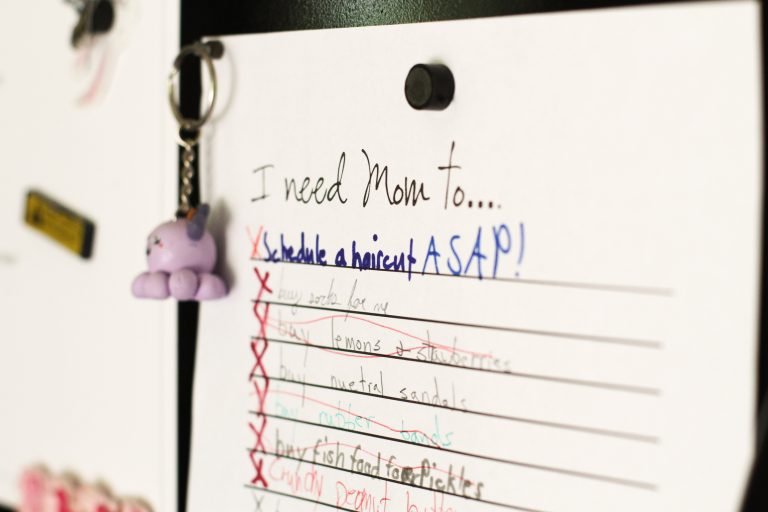 I need Mom to....
X Schedule a haircut ASAP!
X buy socks for me
X buy lemons & stawberries
X buy nuetral sandals
X buy rubber bands
X buy fish food for Pickles
X Crunchy Peanut
X